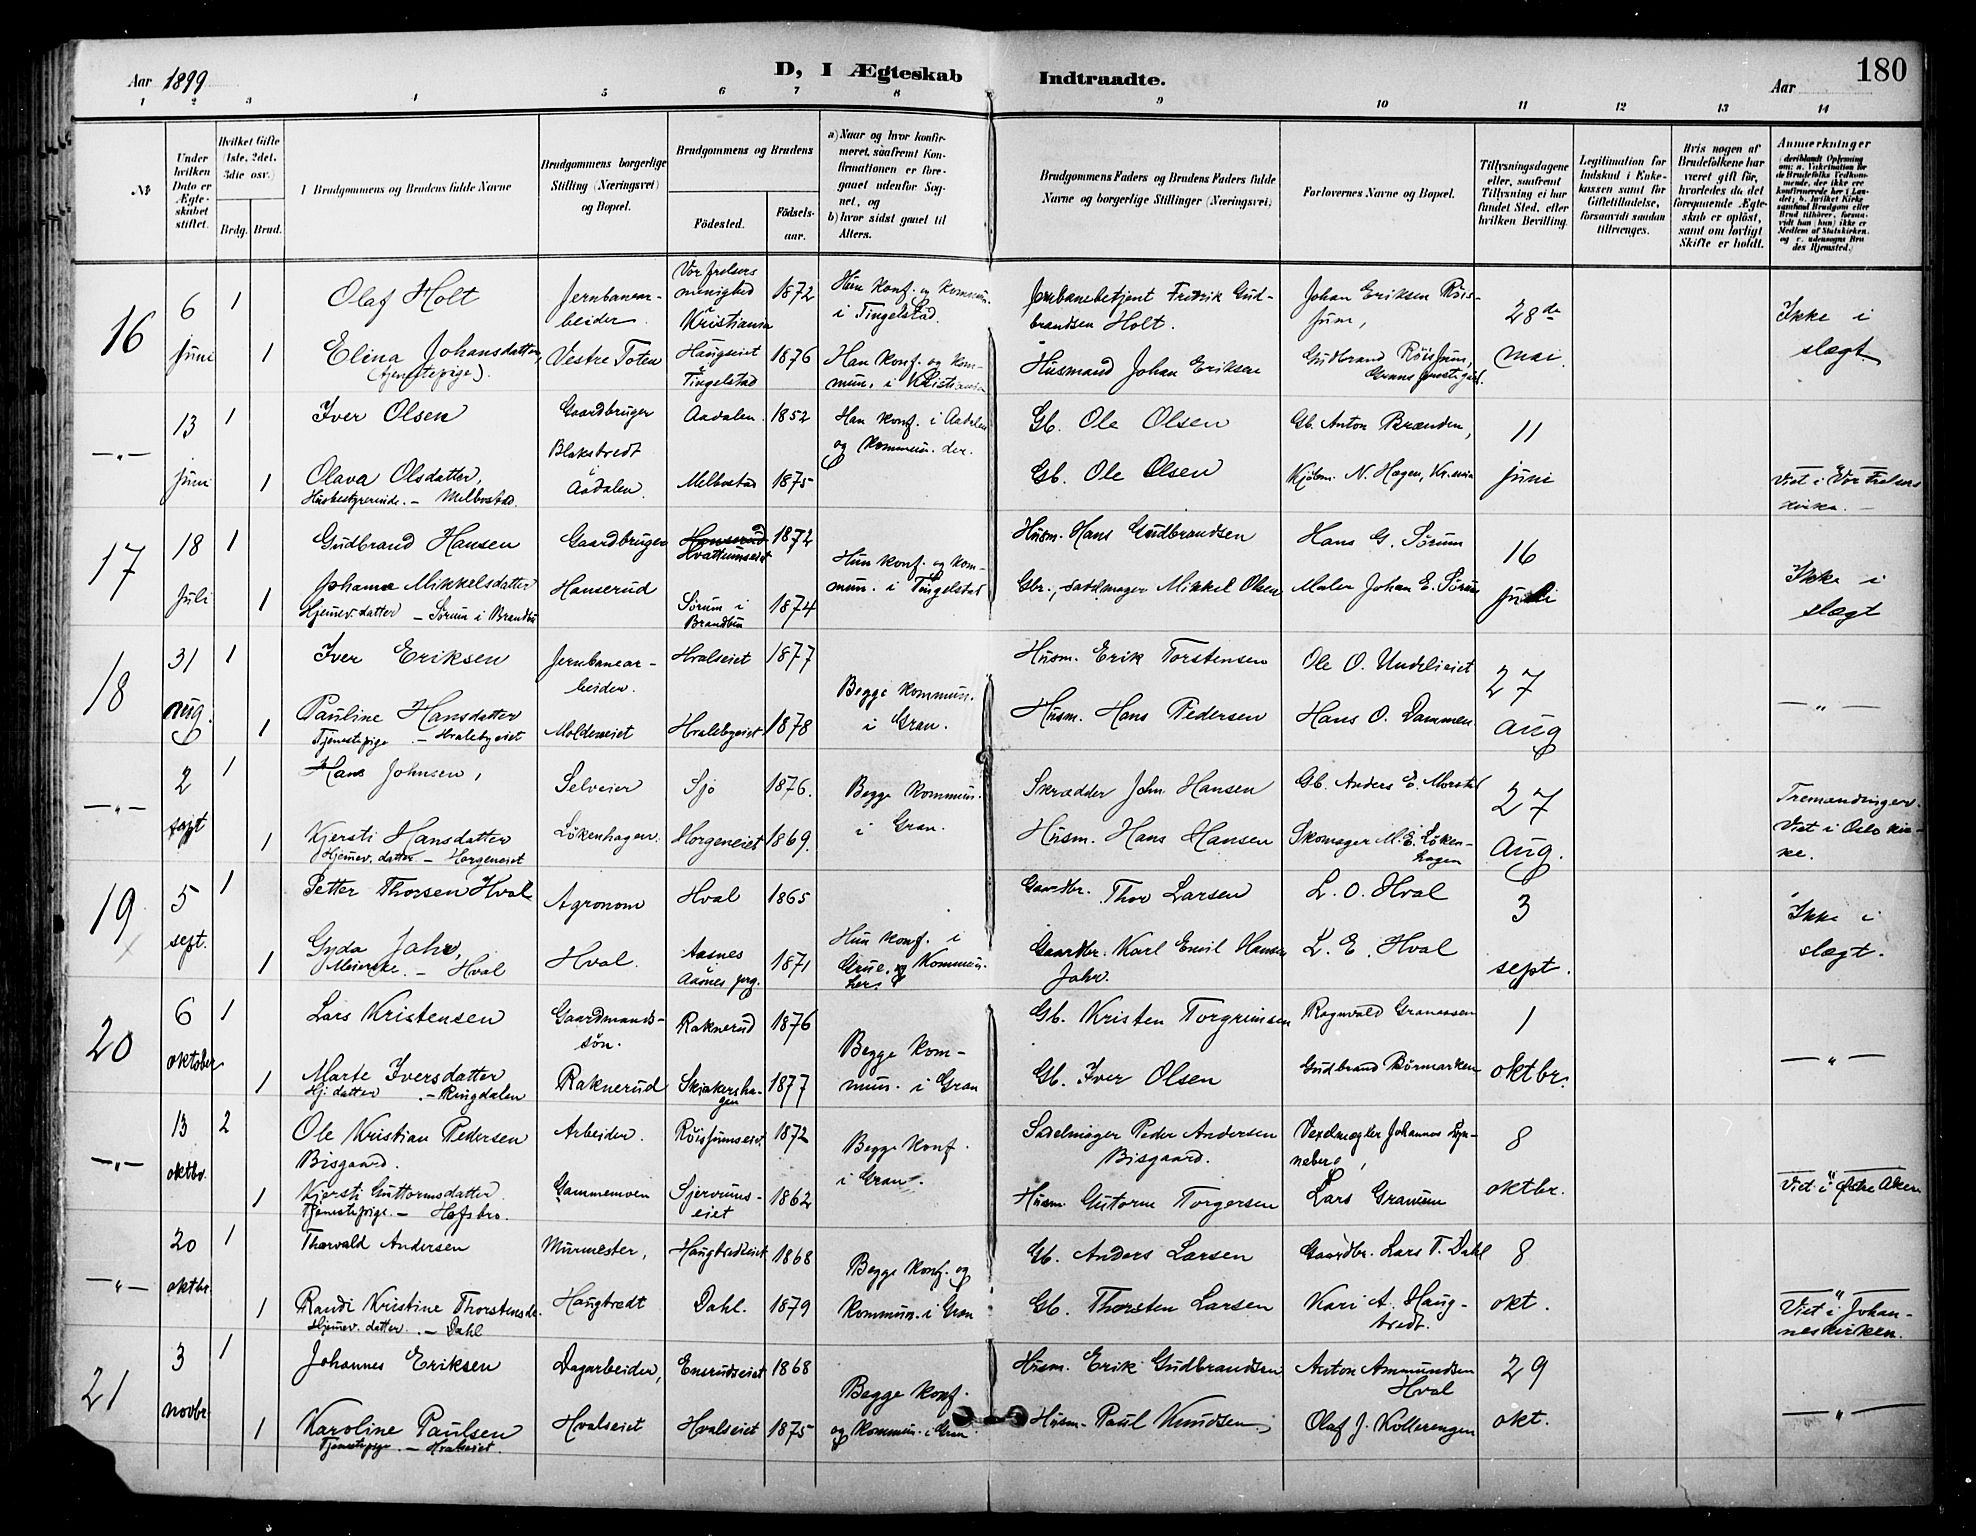 Aar 1899
D, I Ægteskab Indtraadte.
Aar
180
1 2 3 4 5 6 7 8 9 10 11 12 13 14
№
Under hvilken Dato er Ægteskabet stiftet.
Hvilket Gifte (1ste, 2det, 3die osv.)
Brdg. Brud.
Brudgommens og Brudens fulde Navne
Brudgommens borgerlige Stilling (Næringsvei) og Bopæl.
Brudgommens og Brudens
Fødested.
Fødselsaar.
a) Naar og hvor konfirmeret, saafremt Konfirmationen er foregaaet udenfor Sognet, og
b) hvor sidst gaaet til Alters.
Brudgommens Faders og Brudens Faders fulde Navne og borgerlige Stillinger (Næringsvei)
Forlovernes Navne og Bopæl.
Tillysningsdagene eller, saafremt Tillysning ei har fundet Sted, efter hvilken Bevilling.
Legitimation for Indskud i Enkekassen samt for Giftetilladelse, forsaavidt saadan tiltrænges.
Hvis nogen af Brudefolkene har været gift før, hvorledes da det foregaaende Ægteskab er opløst, samt om lovligt Skifte er holdt.
Anmærkninger
16
6 Juni
1
Olaf Holt
Jernbanearbeider.
Vor frelsers menighed i Kristiania
1872
Hun konf. og kommun. i Tingelstad.
Jernbanebetjent Fredrik Gudbrandsen Holt.
Johan Eriksen Røisjum,
28de mai
Ikke i slægt.
1
Elina Johansdatter,
(tjenestepige).
Vestre Toten
Haugseiet i Tingelstad
1876
Han konf. og kommun. i Kristiania
Husmand Johan Eriksen
Gudbrand Røisjum,
— " —
13 Juni
1
Iver Olsen
Gaardbruger
Blaksbredt i Aadalen.
Aadalen.
1852
Han konf. i Aadalen og kommun. der.
Gb. Ole Olsen
Gb. Anton Brænden,
11 juni
1
Olava Olsdatter,
Husbestyrerinde. – Melbostad.
Melbostad
1875
Gb. Ole Olsen
Kjøbm. N. Hagen, Kr.ania
— " —
Viet i Vor Frelsers kirke. —
17
18 Juli
1
Gudbrand Hansen
Gaardbruger
Hanserud
Hvattumseiet
1872
Hun konf. og kommun. i Tingelstad
Husm. Hans Gudbrandsen
Hans G. Sørum
16 Juli
Ikke i slægt
1
Johanna Mikkelsdatter
Hjemev. datter – Sørum i Brandbu
Hanserud
Sørum i Brandbu
1874
Gbr., sadelmager Mikkel Olsen
Maler Johan E. Sørum
18
31 aug.
1
Iver Eriksen
Jernbanearbeider.
Hvalseiet
1877
Begge kommun. i Gran.
Husm. Erik Torstensen
Ole O. Undelieiet
27 aug
— " —
1
Pauline Hansdatter
Tjenestepige – Hvalebyeiet
Moldeneiet
Hvalebyeiet
1878
Husm. Hans Pedersen
Hans O. Dammen
— " —
2 sept
1
Hans Johnsen,
Selveier
Sjo
1876.
Begge kommun. i Gran.
Skrædder John Hansen
Gb. Anders E. Morstad
27 aug.
Tremændinger. Viet i Oslo kirke.
1
Kjersti Hansdatter
Hjemev. datter – Horgeneiet
Løkenhagen.
Horgeneiet
1869.
Husm. Hans Hansen
Skomager M. E. Løkenhagen
19
5 sept.
1
Petter Thorsen Hval
Agronom
Hval
1865
Hun konf. i Grue, og kommun. her.
Gaardbr. Thor Larsen
L. O. Hval
3 sept.
Ikke i slægt.
1
Gyda Jahr,
Meierske. – Hval
Hval.
Aasnes
Aasnes prg.
1871
Gaardbr. Karl Emil Hansen Jahr.
L. E. Hval
20
6 oktober
1
Lars Kristensen
Gaardmandssøn.
Raknerud
1876
Begge kommun. i Gran
Gb. Kristen Torgrimsen
Ragnvald Granaasen
1 oktbr.
— " —
1
Marte Iversdatter
Hj. datter – Ringdalen
Raknerud
Skjakershagen
1877
Gb. Iver Olsen
Gudbrand Børmarken
— " —
13 oktbr.
2
Ole Kristian Pedersen Bisgaard.
Arbeider.
Røisjumseiet
1872
Begge konf. i Gran.
Sadelmager Peder Andersen Bisgaard.
Vexelmægler Johannes Lynneberg,
8 oktbr.
— " —
Viet i Østre Aker
1
Kjersti Guttormsdatter
Tjenestepige. – Hofsbro.
Gammemoen
Sjervumseiet
1862
Husm. Gutorm Torgersen
Lars Granum
— " —
20 oktbr.
1
Thorvald Andersen
Murmester,
Haugbredseiet
1868
Begge konf. og kommun. i Gran
Gb. Anders Larsen
Gaardbr. Lars T. Dahl
8 okt.
1
Randi Kristine Thorstensdr.
Hjemev. datter. – Dahl
Haugbredt
Dahl.
1879
Gb. Thorsten Larsen
Kari A. Haugbredt.
— " —
Viet i Johanneskirken.
21
3 novbr.
1
Johannes Eriksen
Dagarbeider,
Ensrudseiet
1868
Begge konf. og kommun. i Gran
Husm. Erik Gudbrandsen
Anton Ammundsen Hval
29 okt.
— " —
1
Karoline Paulsen
Tjenestepige – Hvalseiet.
Hvalseiet
Hvalseiet
1875
Husm. Paul Knudsen
Olaf J. Kollerengen